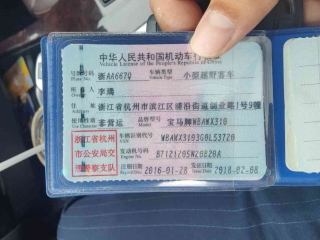 中华人民共和国机动车行驶证
Vehicle License of the People's Republic of China
号牌号码 浙AA667Q 车辆类型 小型越野客车
Vehicle Type
所有人 李腾
Owner
住址 浙江省杭州市滨江区浦沿街道创业路1号9幢
Address
使用性质 非营运 品牌型号 宝马牌WBAWX310
Model
浙江省杭州 车辆识别代号 WBAWX3103G0L53720
VIN
市公安局交 发动机号码 B7121705N20B20A
Engine No.
通警察支队 注册日期 2016-01-28 发证日期 2018-02-08